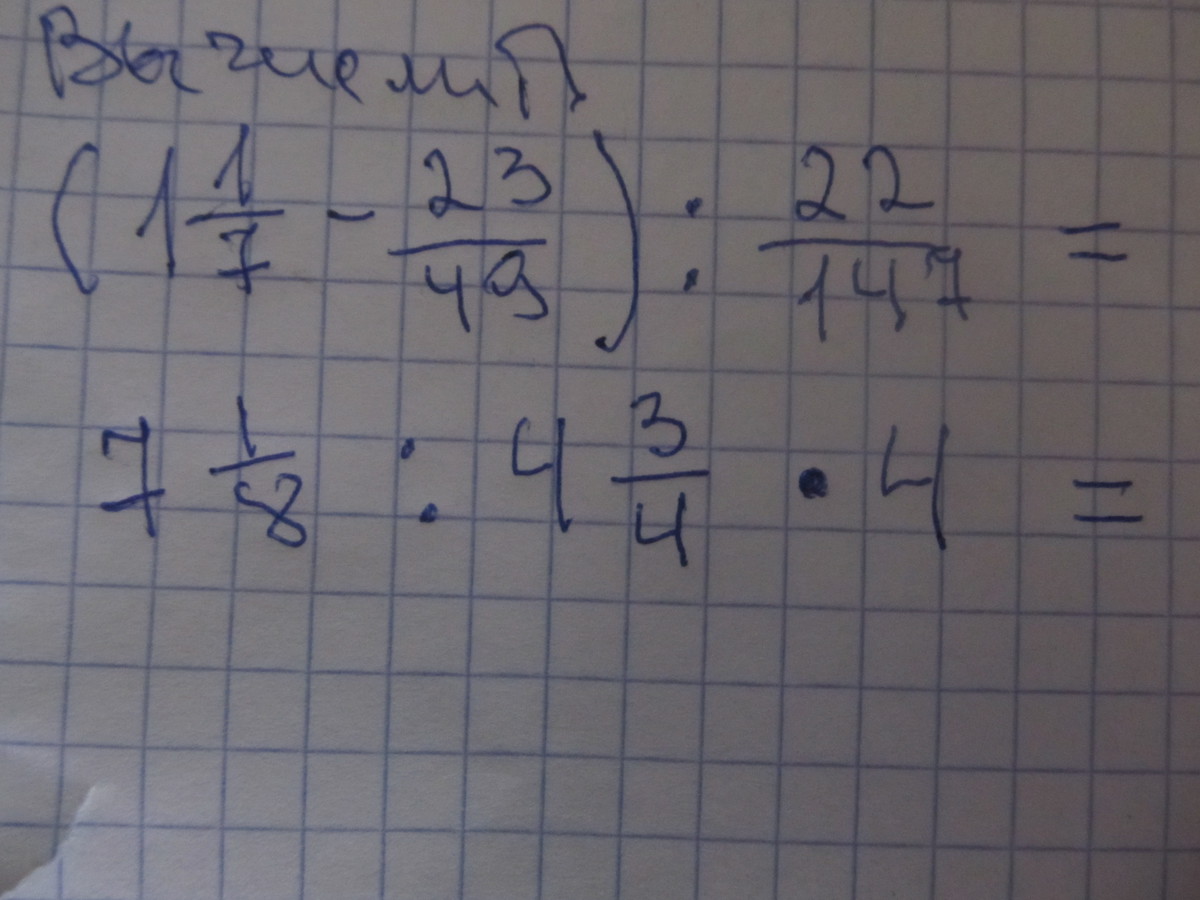 Вычисли
(1 1/7 - 23/49) : 22/147 =
7 1/8 : 4 3/4 • 4 =